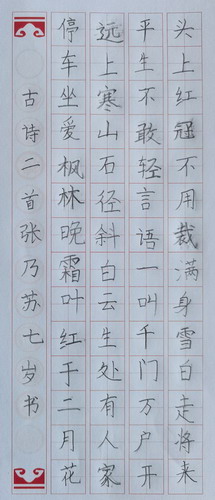 头上红冠不用裁满身雪白走将来
平生不敢轻言语一叫千门万户开
远上寒山石径斜白云生处有人家
停车坐爱枫林晚霜叶红于二月花
古诗二首张乃苏七岁书